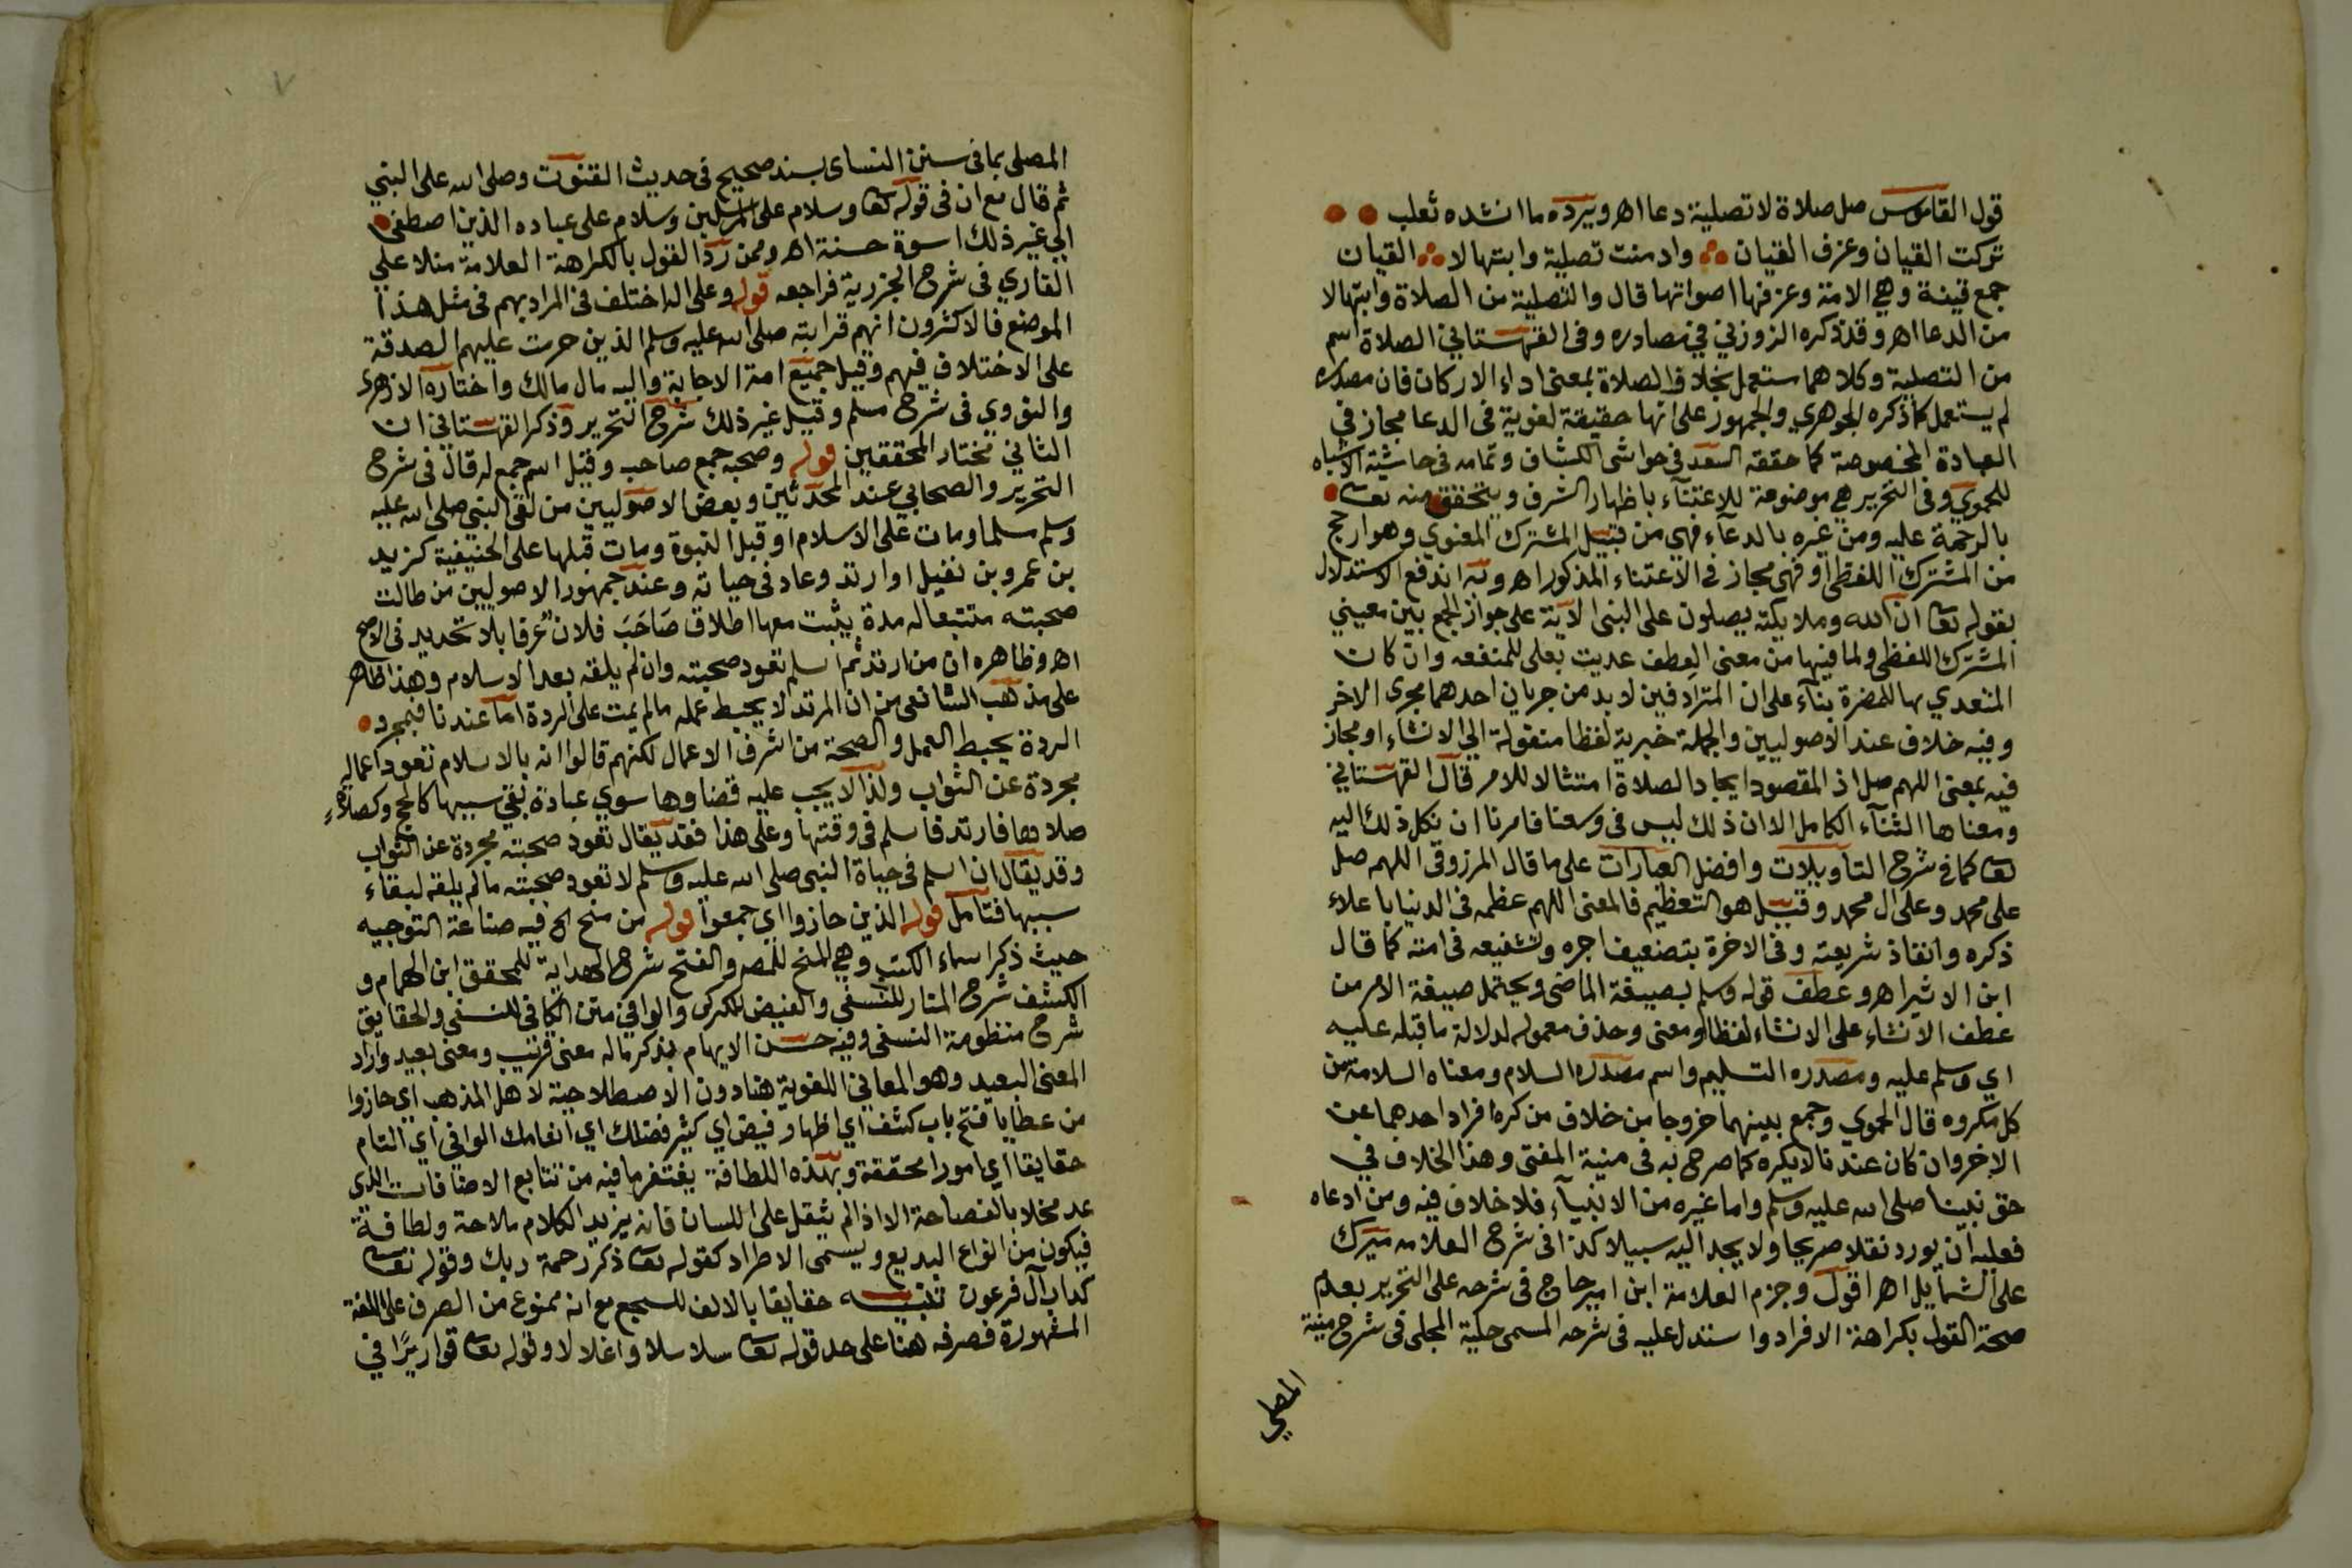 قول القاموس صل صلاة لا تصلية دعا اهـ ويرده ما انشده ثعلب
تركت القيان وعزف القيان وادمنت تصلية وابتهالا القيان
جمع قينة وهي الامة وعزفها اصواتها قال والتصلية من الصلاة وابتهالا
من الدعا اهـ وقد ذكره الزوزني في مصادره وفي القهستاني الصلاة اسم
من التصلية وكلاهما مستعمل بخلاف الصلاة بمعنى اداء الاركان فان مصدره
لم يستعمل كما ذكره الجوهري والجمهور على انها حقيقة لغوية في الدعا مجاز في
العبادة المخصوصة كما حققه السعد في حواشي الكشاف وتمامه في حاشية الاشباه
للحموي وفي التحرير هي موضوعة للاعتنآء باظهار الشرف ويتحقق منه تعالى
بالرحمة عليه ومن غيره بالدعآء فهي من قبيل المشترك المعنوي وهو ارجح
من المشترك اللفظي او فهي مجاز في الاعتناء المذكور اهـ وبه اندفع الاستدلال
بقوله تعالى ان الله وملايكته يصلون على النبي الاية على جواز الجمع بين معنيي
المشترك اللفظي ولما فيها من معنى العطف عديت بعلى للمنفعه وان كان
المتعدي بها للمضرة بنآء على ان المترادفين لا بد من جريان احدهما مجرى الاخر
وفيه خلاف عند الاصوليين والجملة خبرية لفظا منقولة الي الانشاء او مجاز
فيه بمعنى اللهم صل اذ المقصود ايجاد الصلاة امتثالا للامر قال القهستاني
ومعناها الثنآء الكامل الا ان ذلك ليس في وسعنا فامرنا ان نكل ذلك اليه
تعالى كما في شرح التأويلات وافضل العبارات على ما قال المرزوقي اللهم صل
على محمد وعلى ال محمد وقيل هو التعظيم فالمعنى اللهم عظمه في الدنيا باعلاء
ذكره وانفاذ شريعته وفي الاخرة بتضعيف اجره وتشفيعه في امته كما قال
ابن الاثير اهـ وعطف قوله وسلم بصيغة الماضي ويحتمل صيغة الامر من
عطف الانشاء على الانشاء لفظا ومعنى وحذف معموله لدلالة ما قبله عليه
اي وسلم عليه ومصدره التسليم واسم مصدره السلام ومعناه السلامة من
كل مكروه قال الحموي وجمع بينهما خروجا من خلاف من كره افراد احدهما عن
الاخر وان كان عندنا لا يكره كما صرح به في منية المفتي وهذا الخلاف في
حق نبينا صلى الله عليه وسلم واما غيره من الانبيآء فلا خلاف فيه ومن ادعاه
فعليه ان يورد نقلا صريحا ولا يجد اليه سبيلا كذا في شرح العلامه ميرك
على الشمايل اهـ اقول وجزم العلامة ابن امير حاج في شرحه على التحرير بعدم
صحة القول بكراهة الافراد واستدل عليه في شرحه المسمى حلية المجلي في شرح منية
المصلي
المصلي بما في سنن النساي بسند صحيح في حديث القنوت وصلى الله على النبي
ثم قال مع ان في قوله تعالى وسلام على المرسلين وسلام على عباده الذين اصطفى
الي غير ذلك اسوة حسنة اهـ وممن رد القول بالكراهة العلامة منلا علي
القاري في شرح الجزرية فراجعه قوله وعلى اله اختلف في المراد بهم في مثل هذا
الموضع فالاكثرون انهم قرابته صلى الله عليه وسلم الذين حرمت عليهم الصدقة
على الاختلاف فيهم وقيل جميع امة الاجابة واليه مال مالك واختاره الازهري
والنووي في شرح مسلم وقيل غير ذلك شرح التحرير وذكر القهستاني ان
الثاني مختار المحققين قوله وصحبه جمع صاحب وقيل اسم جمع له قال في شرح
التحرير والصحابي عند المحدثين وبعض الاصوليين من لقي النبي صلى الله عليه
وسلم مسلما ومات على الاسلام او قبل النبوة ومات قبلها على الحنيفية كزيد
بن عمرو بن نفيل او ارتد وعاد في حياته وعند جمهور الاصوليين من طالت
صحبته متتبعا له مدة يثبت معها اطلاق صَاحَبَ فلان عرفا بلا تحديد في الاصح
اهـ وظاهره ان من ارتد ثم اسلم تعود صحبته وان لم يلقه بعد الاسلام وهذا ظاهر
على مذهب الشافعي من ان المرتد لا يحبط عمله مالم يمت على الردة اما عندنا فبمجرد
الردة يحبط العمل والصحبة من اشرف الاعمال لكنهم قالوا انه بالاسلام تعود اعماله
مجردة عن الثواب ولذا لا يجب عليه قضاوها سوي عبادة بقي سببها كالحج وكصلاة
صلاها فارتد فاسلم في وقتها وعلى هذا فقد يقال تعود صحبته مجردة عن الثواب
وقد يقال ان اسلم في حياة النبي صلى الله عليه وسلم لا تعود صحبته مالم يلقه لبقاء
سببها فتامل قوله الذين حازوا اي جمعوا قوله من منح الخ فيه صناعة التوجيه
حيث ذكر اسماء الكتب وهي المنح للمص والفتح شرح الهداية للمحقق ابن الهمام و
الكشف شرح المنار للنسفي والفيض للكركي والوافي متن الكافي للنسفي والحقايق
شرح منظومة النسفي وفيه حسن الايهام بذكر ماله معنى قريب ومعنى بعيد واراد
المعنى البعيد وهو المعاني اللغوية هنا دون الاصطلاحية لاهل المذهب اي حازوا
من عطايا فتح باب كشف اي اظهار فيض اي كثير فضلك اي انعامك الوافي اي التام
حقايقا اي امورا محققة وبهذه اللطافة يغتفر ما فيه من تتابع الاضافات الذي
عد مخلا بالفصاحة الا اذا لم يثقل على اللسان فانه يزيد الكلام ملاحة ولطافة
فيكون من انواع البديع ويسمى الاطراد كقوله تعالى ذكر رحمة ربك وقوله تعالى
كداب آل فرعون تنبيه حقايقا بالالف للسجع مع انه ممنوع من الصرف على اللغة
المشهورة فصرفه هنا على حد قوله تعالى سلاسلا واغلالا وقوله تعالى قواريرًا في